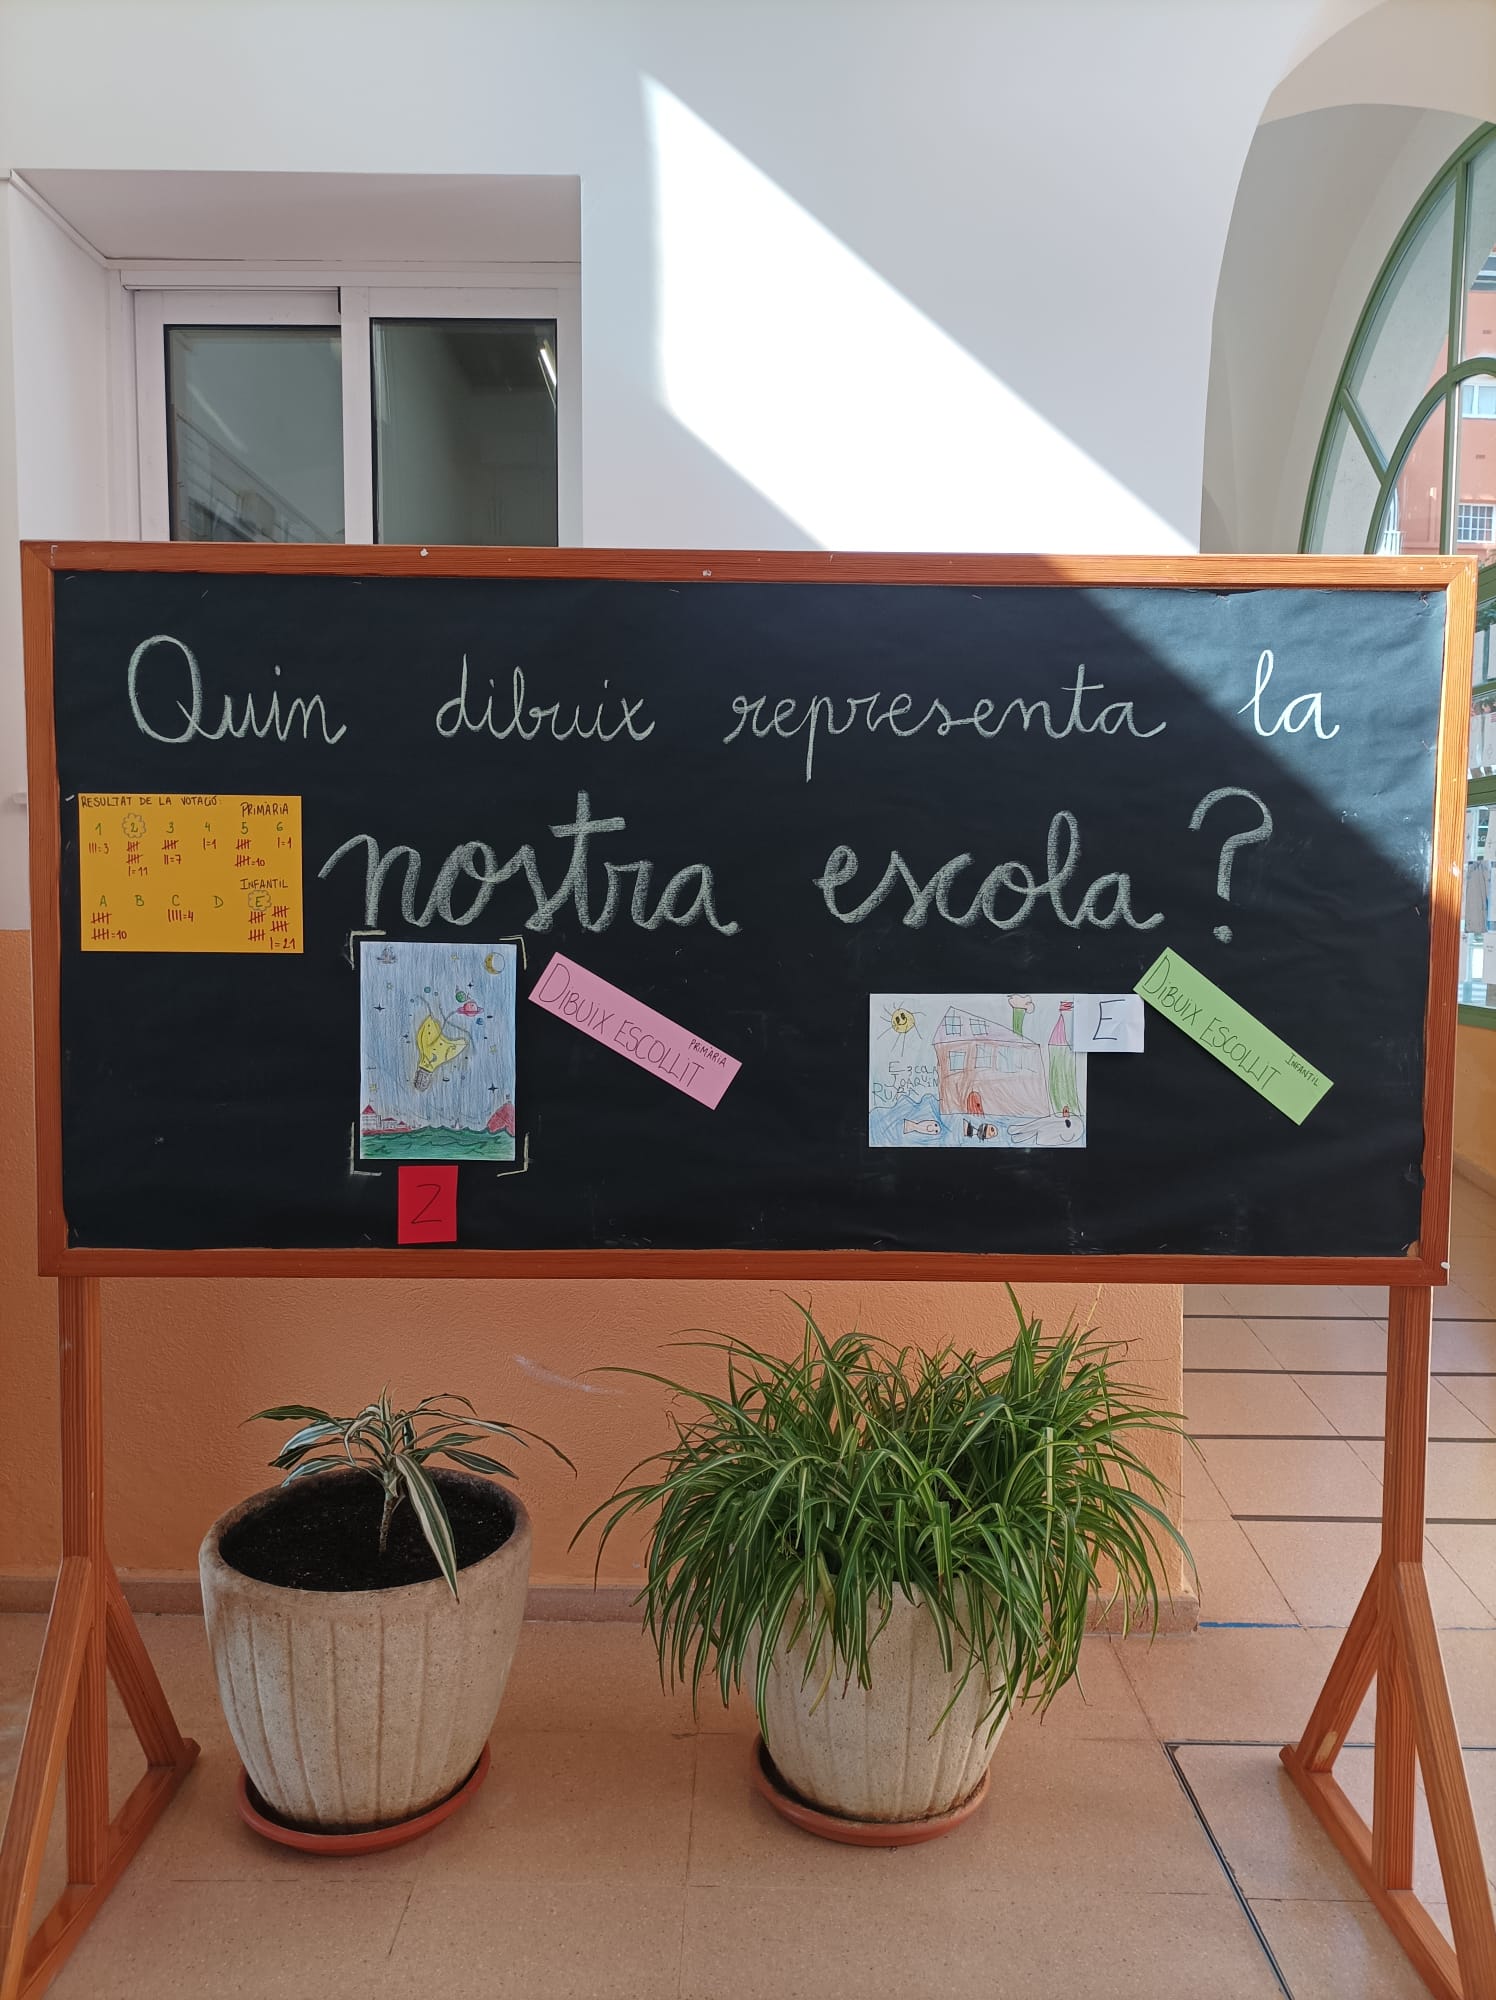 Quin dibuix representa la
nostra escola?
RESULTAT DE LA VOTACIÓ:
PRIMÀRIA
1 2 3 4 5 6
III=3 II=7 I=1 =10 I=1
I=11
INFANTIL
A B C D E
IIII=4
=10
I=21
DIBUIX ESCOLLIT
PRIMÀRIA
2
ESCOLA
JOAQUIM
RUYRA
E
DIBUIX ESCOLLIT
INFANTIL